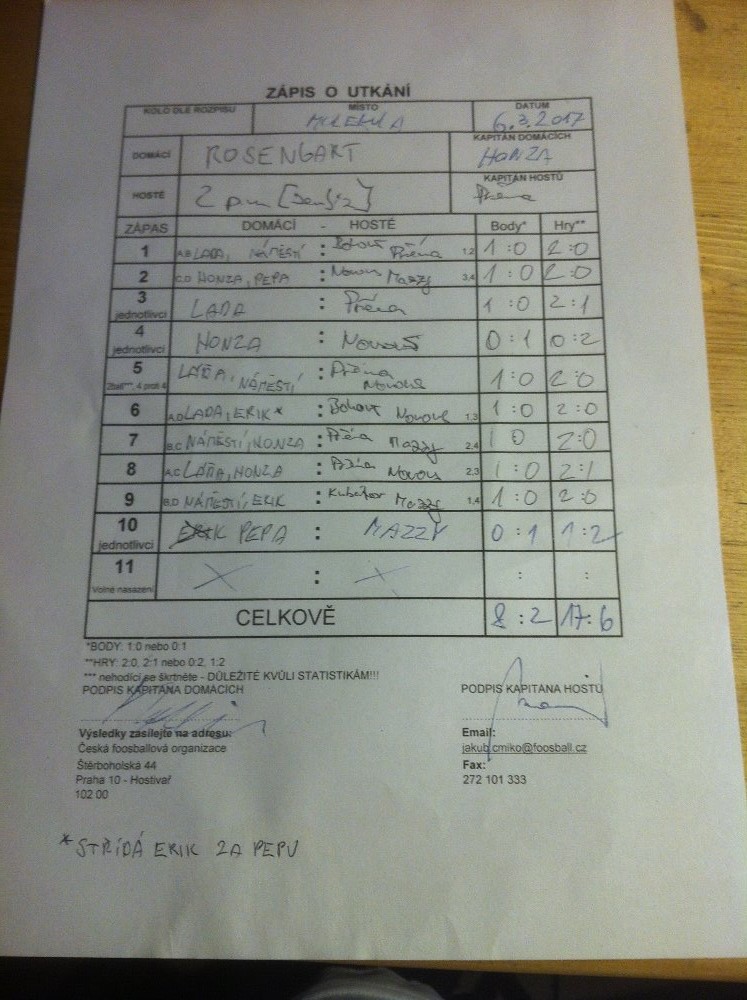 ZÁPIS O UTKÁNÍ
KOLO DLE ROZPISU MÍSTO DATUM
MOLEKULA 6.3.2017
DOMÁCÍ ROSENGART KAPITÁN DOMÁCÍCH
HONZA
HOSTÉ 2 pum KAPITÁN HOSTŮ
ZÁPAS DOMÁCÍ - HOSTÉ Body* Hry**
1 A,B LADA, NÁMĚSTÍ : Bohouš Přéna 1,2 1:0 2:0
2 C,D HONZA, PEPA : Novous Mazzy 3,4 1:0 2:0
3 jednotlivci LADA : Přéna 1:0 2:1
4 jednotlivci HONZA : Novouš 0:1 0:2
5 2ball***, 4 proti 4 LÁĎA, NÁMĚSTÍ : Přéna Novous 1:0 2:0
6 A,D LADA, ERIK* : Bohouš Novous 1,3 1:0 2:0
7 B,C NÁMĚSTÍ, HONZA : Přéna Mazzy 2,4 1 0 2:0
8 A,C LÁĎA, HONZA : Přéna Novous 2,3 1:0 2:1
9 B,D NÁMĚSTÍ, ERIK : Mazzy 1,4 1:0 2:0
10 jednotlivci ERIK PEPA : MAZZY 0:1 1:2
11 Volné nasazení X : X : :
CELKOVĚ 8:2 17:6
*BODY: 1:0 nebo 0:1
**HRY: 2:0, 2:1 nebo 0:2, 1:2
*** nehodící se škrtněte - DŮLEŽITÉ KVŮLI STATISTIKÁM!!!
PODPIS KAPITÁNA DOMÁCÍCH PODPIS KAPITÁNA HOSTŮ
Výsledky zasílejte na adresu: Email:
Česká foosballová organizace jakub.cmiko@foosball.cz
Štěrboholská 44 Fax:
Praha 10 - Hostivař 272 101 333
102 00
*STŘÍDÁ ERIK ZA PEPU